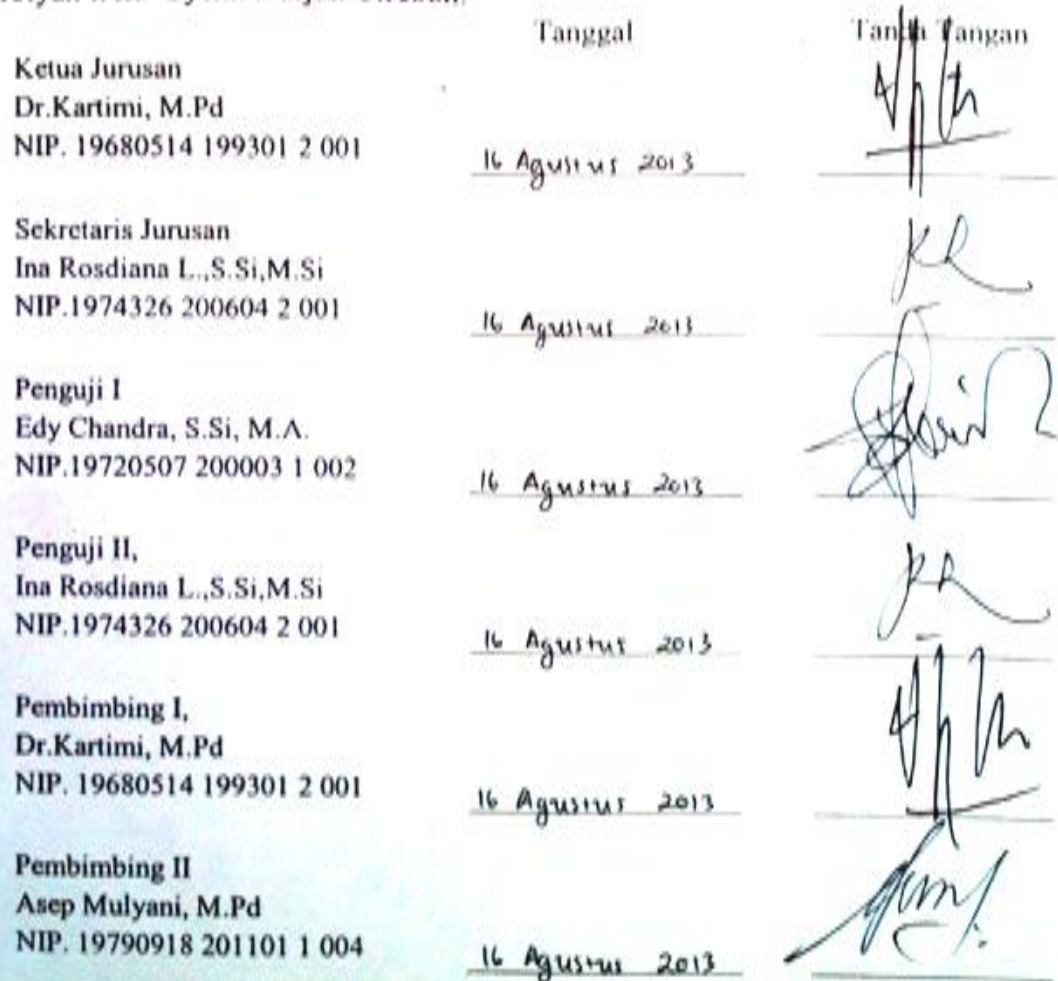 Tanggal Tanda Tangan
Ketua Jurusan
Dr.Kartimi, M.Pd
NIP. 19680514 199301 2 001
16 Agustus 2013
Sekretaris Jurusan
Ina Rosdiana L.,S.Si,M.Si
NIP.1974326 200604 2 001
16 Agustus 2013
Penguji I
Edy Chandra, S.Si, M.A.
NIP.19720507 200003 1 002
16 Agustus 2013
Penguji II,
Ina Rosdiana L.,S.Si,M.Si
NIP.1974326 200604 2 001
16 Agustus 2013
Pembimbing I,
Dr.Kartimi, M.Pd
NIP. 19680514 199301 2 001
16 Agustus 2013
Pembimbing II
Asep Mulyani, M.Pd
NIP. 19790918 201101 1 004
16 Agustus 2013